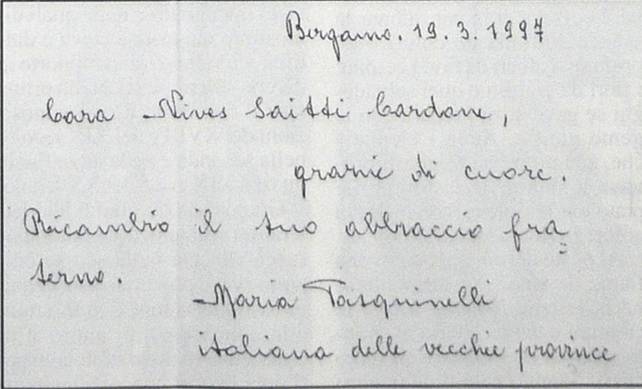 Bergamo. 19. 3. 1997
Cara Nives Saitti Cardone,
grazie di cuore.
Ricambio il tuo abbraccio fra=
terno.
Maria Pasquinelli
italiana delle vecchie province